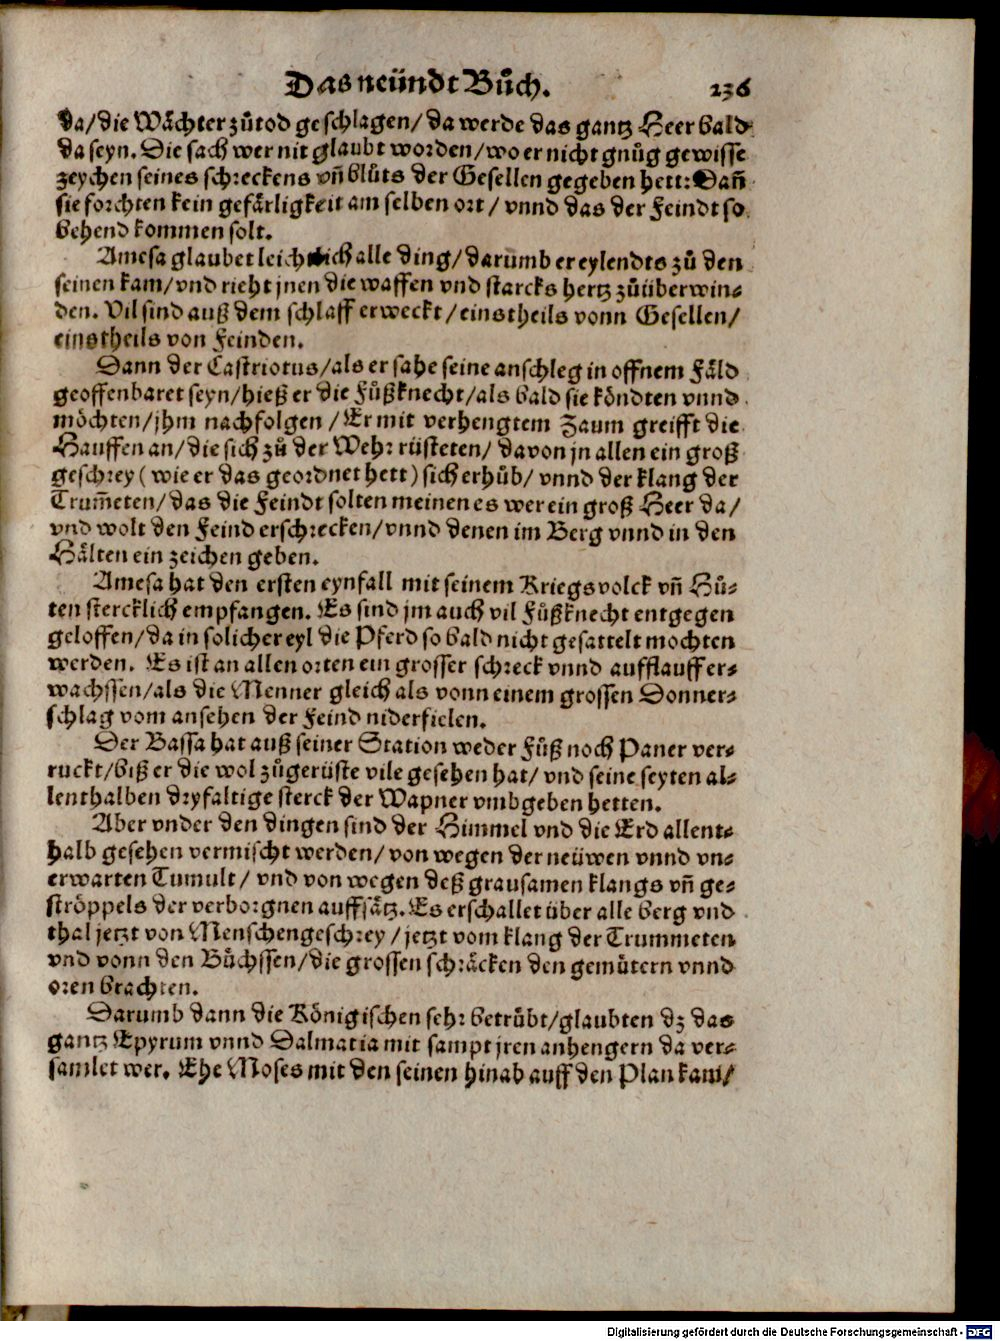 Das neündt Bůch. 236
da/die Wächter zůtod geschlagen/da werde das gantz Heer bald
da seyn. Die sach wer nit glaubt worden/wo er nicht gnůg gewisse
zeychen seines schreckens vñ blůts der Gesellen gegeben hett: Dañ
sie forchten kein gefärligkeit am selben ort/ vnnd das der Feindt so
behend kommen solt.
Amesa glaubet leichtlich alle ding/darumb er eylendts zů den
seinen kam/vnd rieht jnen die waffen vnd starcks hertz zůüberwin⸗
den. Vil sind auß dem schlaff erweckt/einstheils vonn Gesellen/
einstheils von Feinden.
Dann der Castriotus/als er sahe seine anschleg in offnem Fäld
geoffenbaret seyn/hieß er die Fůßknecht/als bald sie köndten vnnd
möchten/jhm nachfolgen/Er mit verhengtem Zaum greifft die
Hauffen an/die sich zů der Wehr rüsteten/davon jn allen ein groß
geschrey (wie er das geordnet hett) sich erhůb/ vnnd der klang der
Trum̃eten/das die Feindt solten meinen es wer ein groß Heer da/
vnd wolt den Feind erschrecken/vnnd denen im Berg vnnd in den
Hälten ein zeichen geben.
Amesa hat den ersten eynfall mit seinem Kriegsvolck vñ Hů⸗
ten stercklich empfangen. Es sind jm auch vil Fůßknecht entgegen
geloffen/da in solicher eyl die Pferd so bald nicht gesattelt mochten
werden. Es ist an allen orten ein grosser schreck vnnd aufflauff er⸗
wachssen/als die Menner gleich als vonn einem grossen Donner⸗
schlag vom ansehen der Feind niderfielen.
Der Bassa hat auß seiner Station weder Fůß noch Paner ver⸗
ruckt/biß er die wol zůgerüste vile gesehen hat/ vnd seine seyten al⸗
lenthalben dryfaltige sterck der Wapner vmbgeben hetten.
Aber vnder den dingen sind der Himmel vnd die Erd allent⸗
halb gesehen vermischt werden/von wegen der neüwen vnnd vn⸗
erwarten Tumult/ vnd von wegen deß grausamen klangs vñ ge⸗
ströppels der verborgnen auffsätz. Es erschallet über alle berg vnd
thal jetzt von Menschengeschrey/jetzt vom klang der Trummeten
vnd vonn den Bůchssen/die grossen schräcken den gemütern vnnd
oren brachten.
Darumb dann die Königischen sehr betrübt/glaubten dz das
gantz Epyrum vnnd Dalmatia mit sampt jren anhengern da ver⸗
samlet wer. Ehe Moses mit den seinen hinab auff den Plan kam/
Digitalisierung gefördert durch die Deutsche Forschungsgemeinschaft - DFG